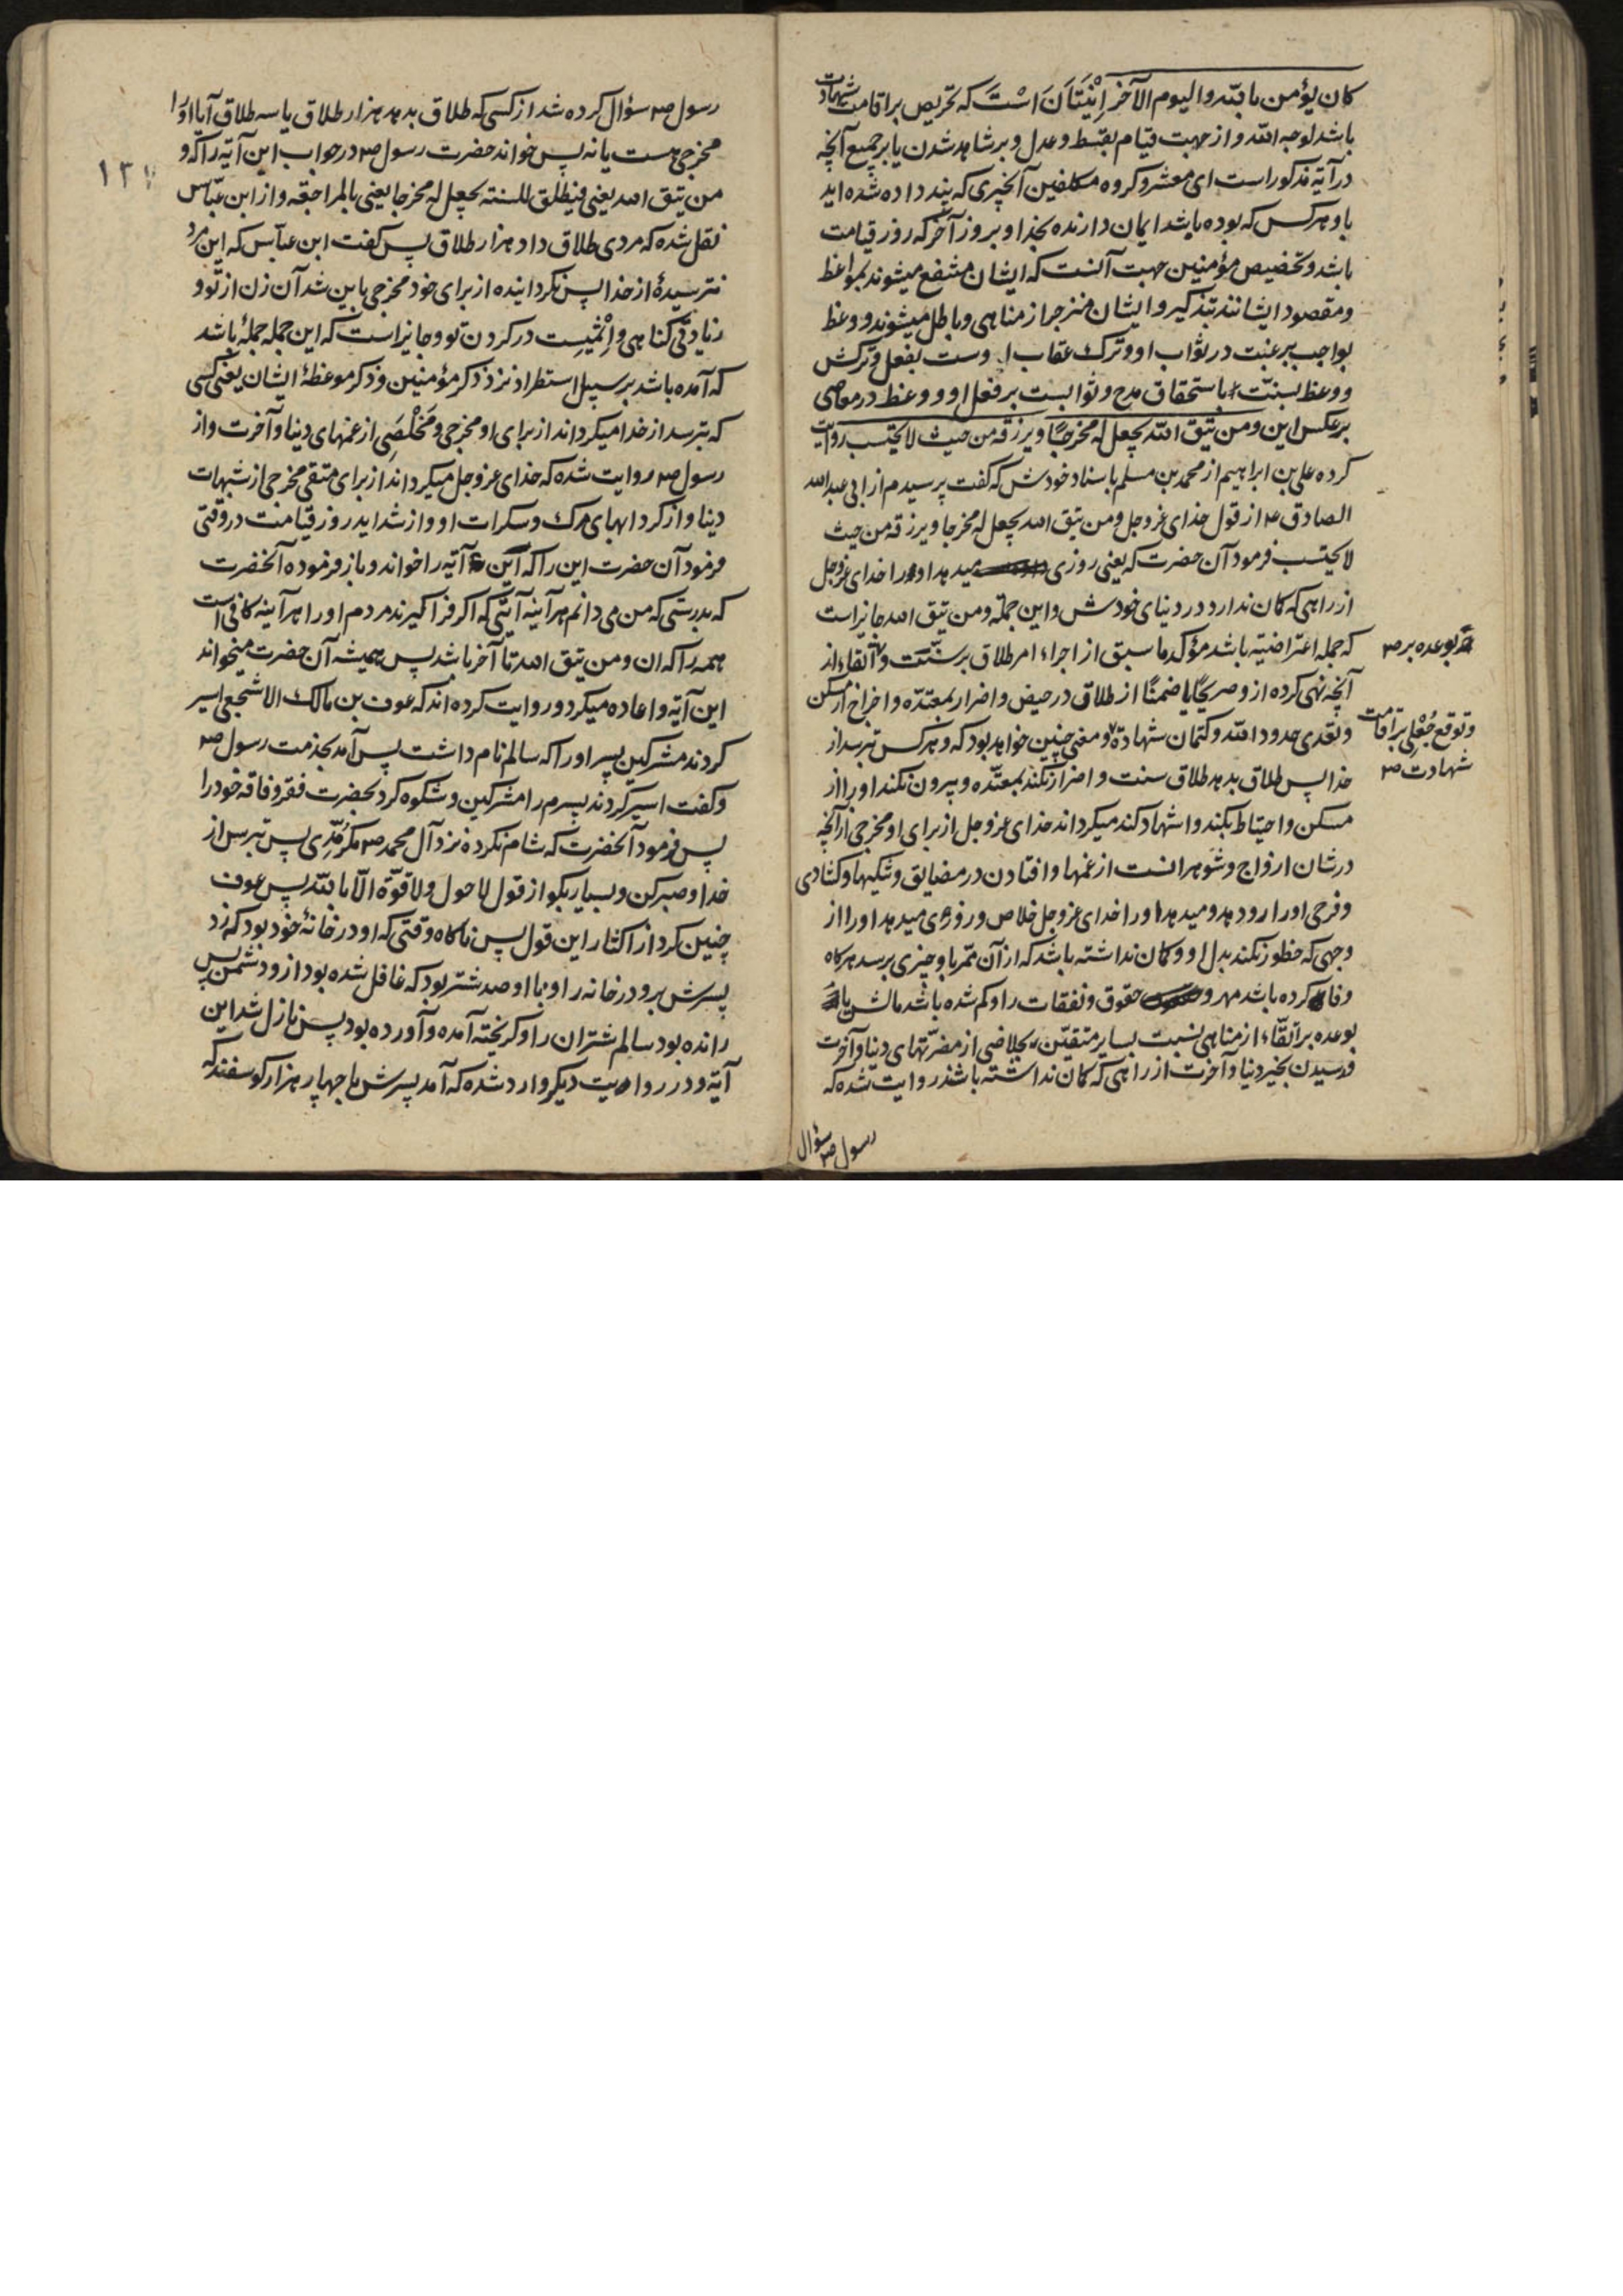 کان یؤمن بالله والیوم الآخر اینست که تحریص بر اقامت شهادت
باشد لوجه الله و از جهت قیام بقسط و عدل و بر شاهد شدن یا بر جمیع آنچه
در آیه مذکور است ای معشر و کروه مکلفین آنچیزی که پند داده شده اید
باو هر کس که بوده باشد ایمان دارنده بخدا و بروز آخر که روز قیامت
باشد و تخصیص مؤمنین جهت آنست که ایشان منتفع میشوند بمواعظ
و مقصود ایشانند بتذکیر و ایشان منزجر از مناهی و باطل میشوند و وعظ
بواجب برغبت در ثواب او و ترک عقاب اوست بفعل و ترکش
و وعظ بسنت باستحقاق مدح و ثوابست بر فعل او و وعظ در معاصی
برعکس این ومن یتق الله یجعل له مخرجًا ویرزقه من حیث لا یحتسب روایت
کرده علی بن ابراهیم از محمد بن مسلم باسناد خودش که کفت پرسیدم از ابی عبد الله
الصادق ع از قول خدای عز وجل ومن یتق الله یجعل له مخرجا ویرزقه من حیث
لا یحتسب فرمود آن حضرت که یعنی روزی میدهد او را خدای عز وجل
از راهی که کمان ندارد در دنیای خودش و این جمله ومن یتق الله جایز است
که جمله اعتراضیه باشد مؤکد ما سبق از اجراء امر طلاق بر سنّت و اتقاء از
بوعده بر صح
آنچه نهی کرده ازو صریحًا یا ضمنًا از طلاق در حیض و اضرار بمعتدّه و اخراج از مسکن
و تعدی حدود الله و کتمان شهادة و معنی چنین خواهد بود که و هر کس بترسد از
و توقع جُعْل بر اقامت
شهادت صح
خدا پس طلاق بدهد طلاق سنت و اضرار نکند بمعتدّه و بیرون نکند او را از
مسکن و احتیاط بکند و اشهاد کند میکرداند خدای عز وجل از برای او مخرجی از آنچه
در شان ازواج و شوهرانست از غمها و افتادن در مضایق و تنکیها و کشادی
و فرجی او را رو دهد و میدهد او را خدای عز وجل خلاص و روزی میدهد او را از
وجهی که خطور نکند بدل او و کمان نداشته باشد که از آن ممر باو چیزی برسد هر کاه
وفا کرده باشد مهر و حقوق و نفقات را و کم شده باشد مالش یا
بوعده بر اتقّاء از مناهی نسبت بسایر متقیّن بخلاصی از مضرّتهای دنیا و آخرت
و رسیدن بخیر دنیا و آخرت از راهی که کمان نداشته باشد روایت شده که
رسول ص سؤال
رسول ص سؤال کرده شد از کسی که طلاق بدهد هزار طلاق یا سه طلاق آیا او را
مخرجی هست یا نه پس خواند حضرت رسول ص در جواب این آیه را که و
من یتق الله یعنی فیطلق للسنة یجعل له مخرجا یعنی بالمراجعة و از ابن عبّاس
نقل شده که مردی طلاق داد هزار طلاق پس کفت ابن عباس که این مرد
نترسیدهٔ از خدا پس نکرداینده از برای خود مخرجی باین شد آن زن از تو و
زیادتی کناهی و اِثْمیست در کردن تو و جایز است که این جمله جملهٔ باشد
که آمده باشد بر سبیل استطراد نزد ذکر مؤمنین و ذکر موعظهٔ ایشان یعنی کسی
که بترسد از خدا میکرداند از برای او مخرجی و مَخْلَصَی از غمهای دنیا و آخرت و از
رسول ص روایت شده که خدای عز وجل میکرداند از برای متقی مخرجی از شبهات
دنیا و از کردابهای مرک و سکرات او و از شداید روز قیامت در وقتی
فرمود آن حضرت این را که این آیه را خواند و باز فرموده آنحضرت
که بدرستی که من می دانم هر آینه آیتی که اکر فرا کیرند مردم او را هر آینه کافی است
همه را که ان ومن یتق الله تا آخر باشد پس همیشه آن حضرت میخواند
این آیه و اعاده میکرد و روایت کرده اند که عوف بن مالک الاشجعی اسیر
کردند مشرکین پسر او را که سالم نام داشت پس آمد بخدمت رسول ص
و کفت اسیر کردند پسرم را مشرکین و شکوه کرد بحضرت فقر و فاقه خود را
پس فرمود آنحضرت که شام نکرده نزد آل محمد ص مکر مُدّی پس بترس از
خدا و صبر کن و بسیار بکو از قول لا حول ولا قوّة الّا بالله پس عوف
چنین کرد از اکثار این قول پس ناکاه وقتی که او در خانهٔ خود بود که زد
پسرش بر در خانه را و با او صد شتر بود که غافل شده بود ازو دشمن پس
رانده بود سالم شتران را و کریخته آمده و آورده بود پس نازل شد این
آیه و در روایت دیکر وارد شده که آمد پسرش با چهار هزار کوسفند که